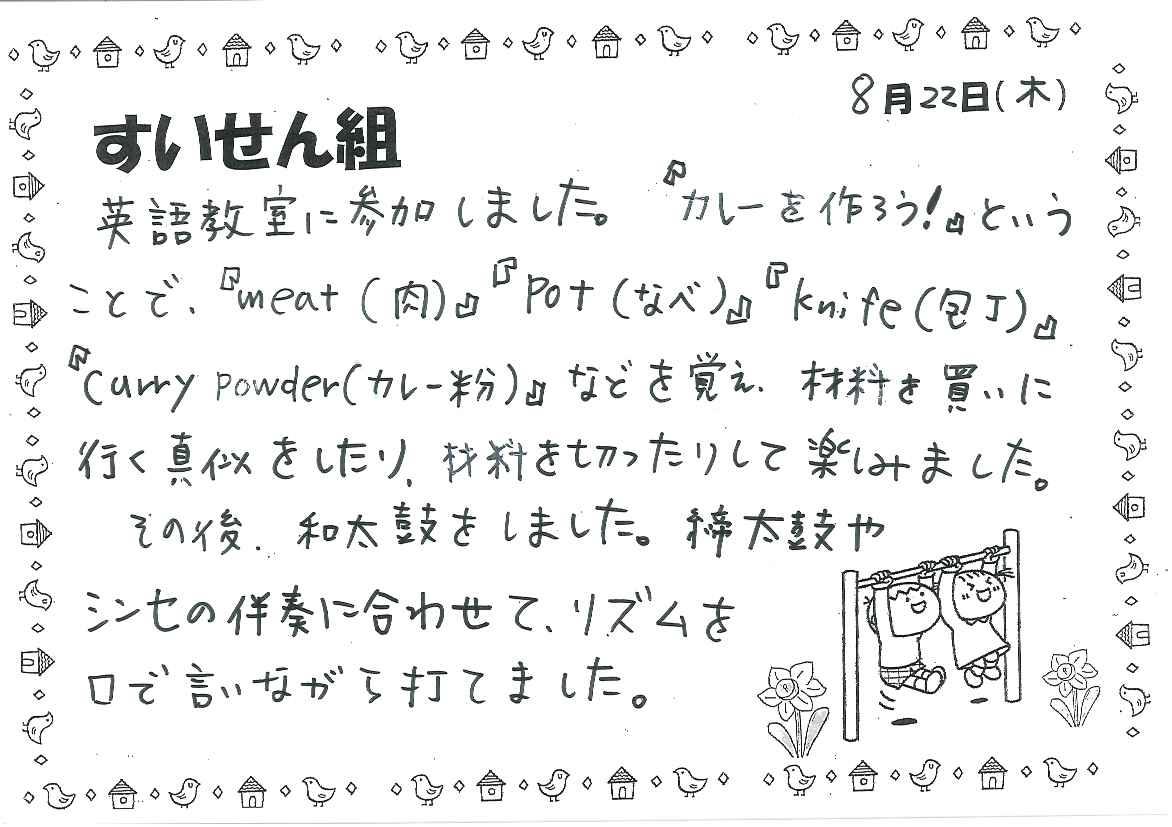 8月22日(木)
すいせん組
英語教室に参加しました。『カレーを作ろう!』という
ことで、『meat(肉)』『pot(なべ)』『knife(包丁)』
『curry powder(カレー粉)』などを覚え、材料を買いに
行く真似をしたり、材料を切ったりして楽しみました。
その後、和太鼓をしました。締太鼓や
シンセの伴奏に合わせて、リズムを
口で言いながら打てました。